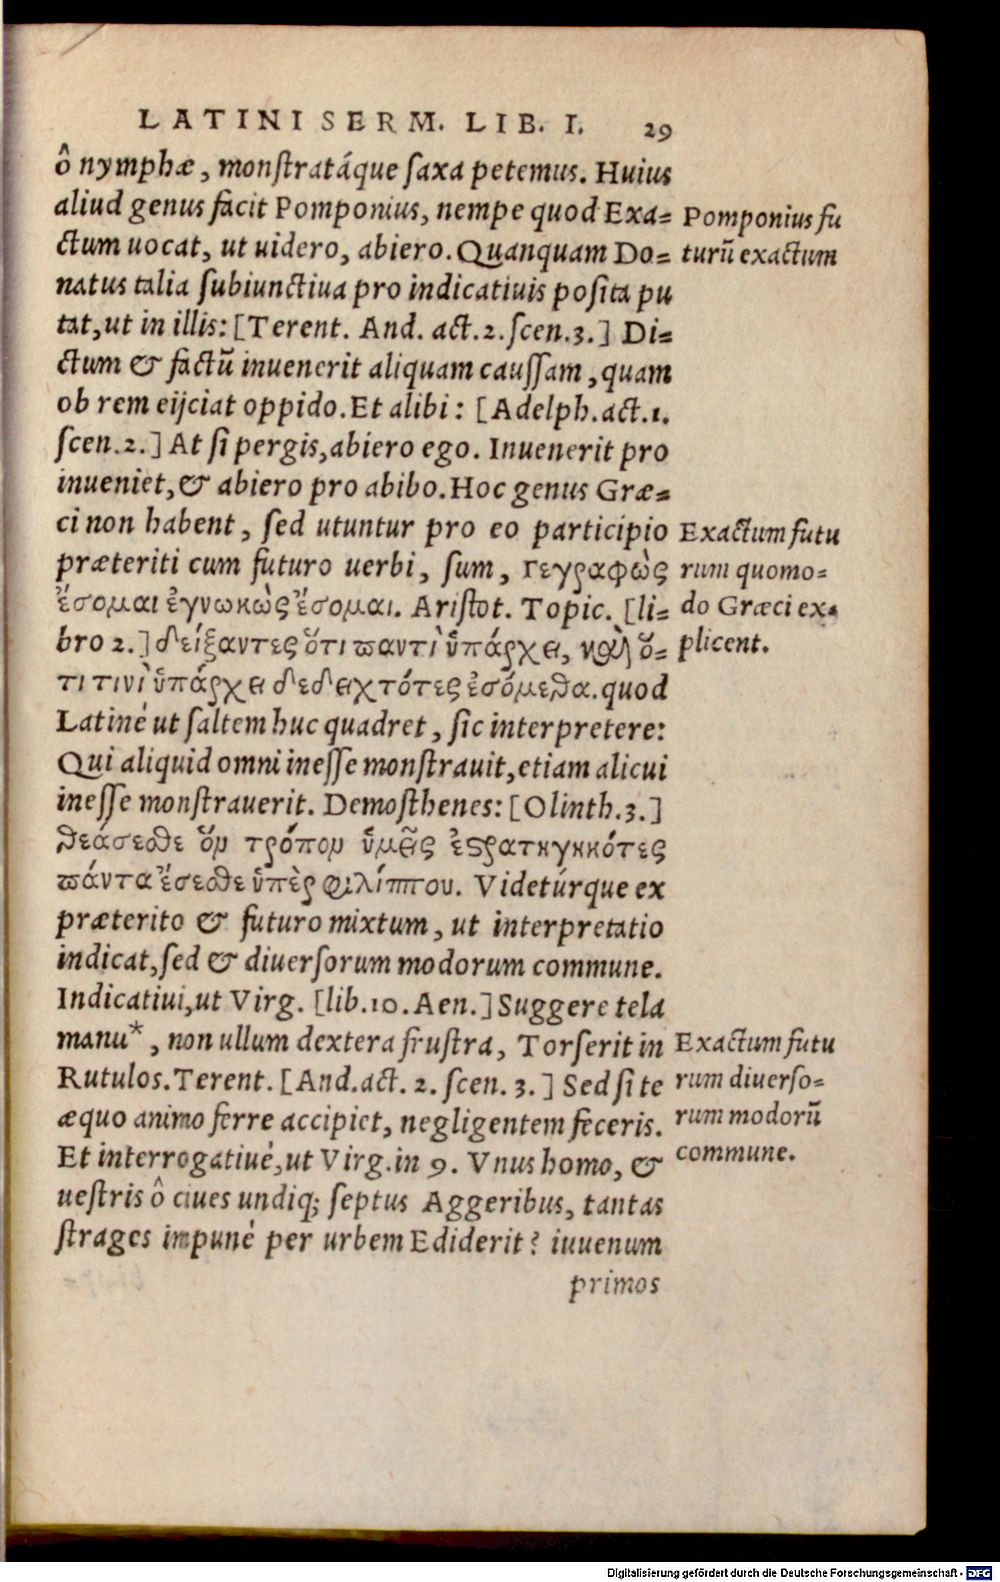 LATINI SERM. LIB. I. 29
ô nymphæ, monstratáque saxa petemus. Huius
aliud genus facit Pomponius, nempe quod Exa=
ctum uocat, ut uidero, abiero. Quanquam Do=
natus talia subiunctiua pro indicatiuis posita pu
tat, ut in illis: [Terent. And. act. 2. scen. 3.] Di=
ctum & factũ inuenerit aliquam caussam, quam
ob rem eijciat oppido. Et alibi: [Adelph. act. 1.
scen. 2.] At si pergis, abiero ego. Inuenerit pro
inueniet, & abiero pro abibo. Hoc genus Græ=
ci non habent, sed utuntur pro eo participio
præteriti cum futuro uerbi, sum, γεγραφὼς
ἔσομαι ἐγνωκὼς ἔσομαι. Aristot. Topic. [li=
bro 2.] δείξαντες ὅτι παντὶ ὑπάρχει, καὶ ὅ=
τι τινὶ ὑπάρχει δεδειχότες ἐσόμεθα. quod
Latinè ut saltem huc quadret, sic interpretere:
Qui aliquid omni inesse monstrauit, etiam alicui
inesse monstrauerit. Demosthenes: [Olinth. 3.]
θεάσεσθε ὃν τρόπον ὑμεῖς ἐστρατηγηκότες
πάντα ἔσεσθε ὑπὲρ φιλίππου. Videtúrque ex
præterito & futuro mixtum, ut interpretatio
indicat, sed & diuersorum modorum commune.
Indicatiui, ut Virg. [lib. 10. Aen.] Suggere tela
manu*, non ullum dextera frustra, Torserit in
Rutulos. Terent. [And. act. 2. scen. 3.] Sed si te
æquo animo ferre accipiet, negligentem feceris.
Et interrogatiuè, ut Virg. in 9. Vnus homo, &
uestris ô ciues undiq; septus Aggeribus, tantas
strages impunè per urbem Ediderit? iuuenum
primos
Pomponius fu
turũ exactum
Exactum futu
rum quomo=
do Græci ex=
plicent.
Exactum futu
rum diuerso=
rum modorũ
commune.
Digitalisierung gefördert durch die Deutsche Forschungsgemeinschaft - DFG